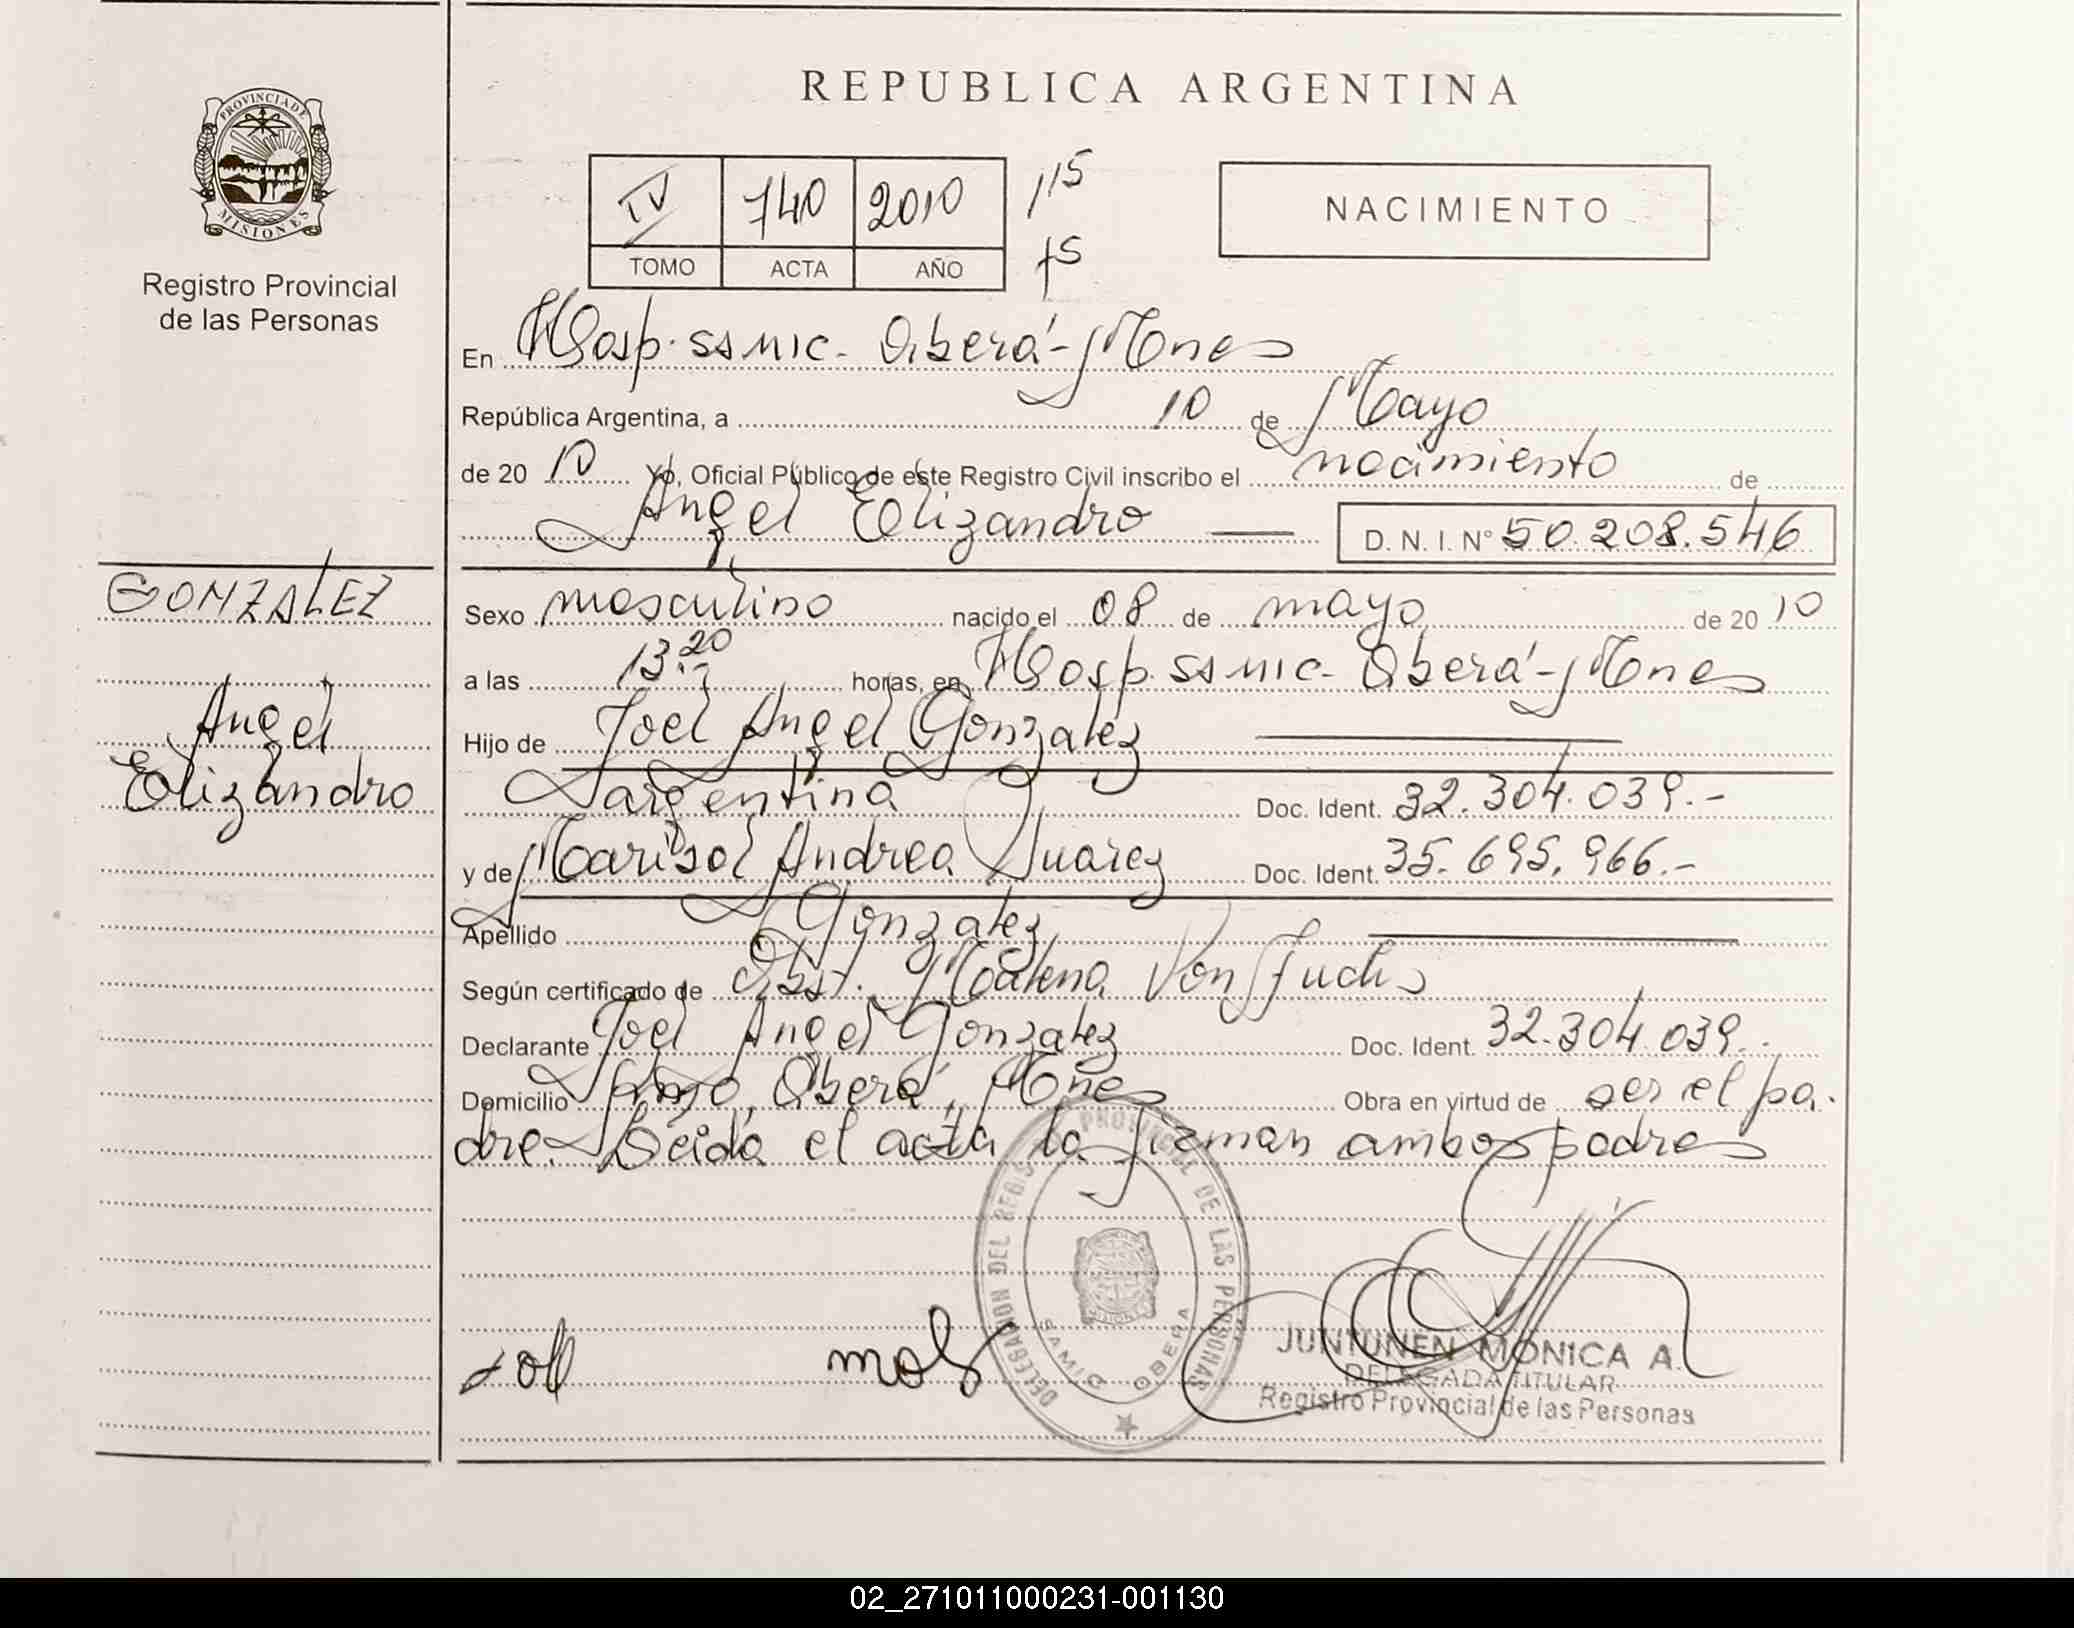 REPUBLICA ARGENTINA
PROVINCIA DE
MISIONES
Registro Provincial
de las Personas
IV 740 2010
TOMO ACTA AÑO
115
f5
NACIMIENTO
En Hosp. SSMIC. Oberá-Mones
República Argentina, a 10 de Mayo
de 20 10 Yo, Oficial Público de este Registro Civil inscribo el nacimiento de
Angel Elizandro D. N. I. N° 50.208.546
GONZALEZ
Angel
Elizandro
Sexo masculino nacido el 08 de mayo de 20 10
a las 13:20 horas, en Hosp. SSMIC. Oberá-Mones
Hijo de Joel Angel Gonzalez
argentina Doc. Ident. 32.304.039.-
y de Marisol Andrea Suarez Doc. Ident. 35.695.966.-
Apellido Gonzalez
Según certificado de Obst. Von Fuchs
Declarante Joel Angel Gonzalez Doc. Ident. 32.304.039.
Domicilio Oberá, Mones Obra en virtud de ser el pa.
dre. Leida el acta la firman ambos padres
DELEGACION DEL REGISTRO PROVINCIAL DE LAS PERSONAS
SAMIC OBERA
JUNTUNEN MONICA A.
DELEGADA TITULAR
Registro Provincial de las Personas
02_271011000231-001130